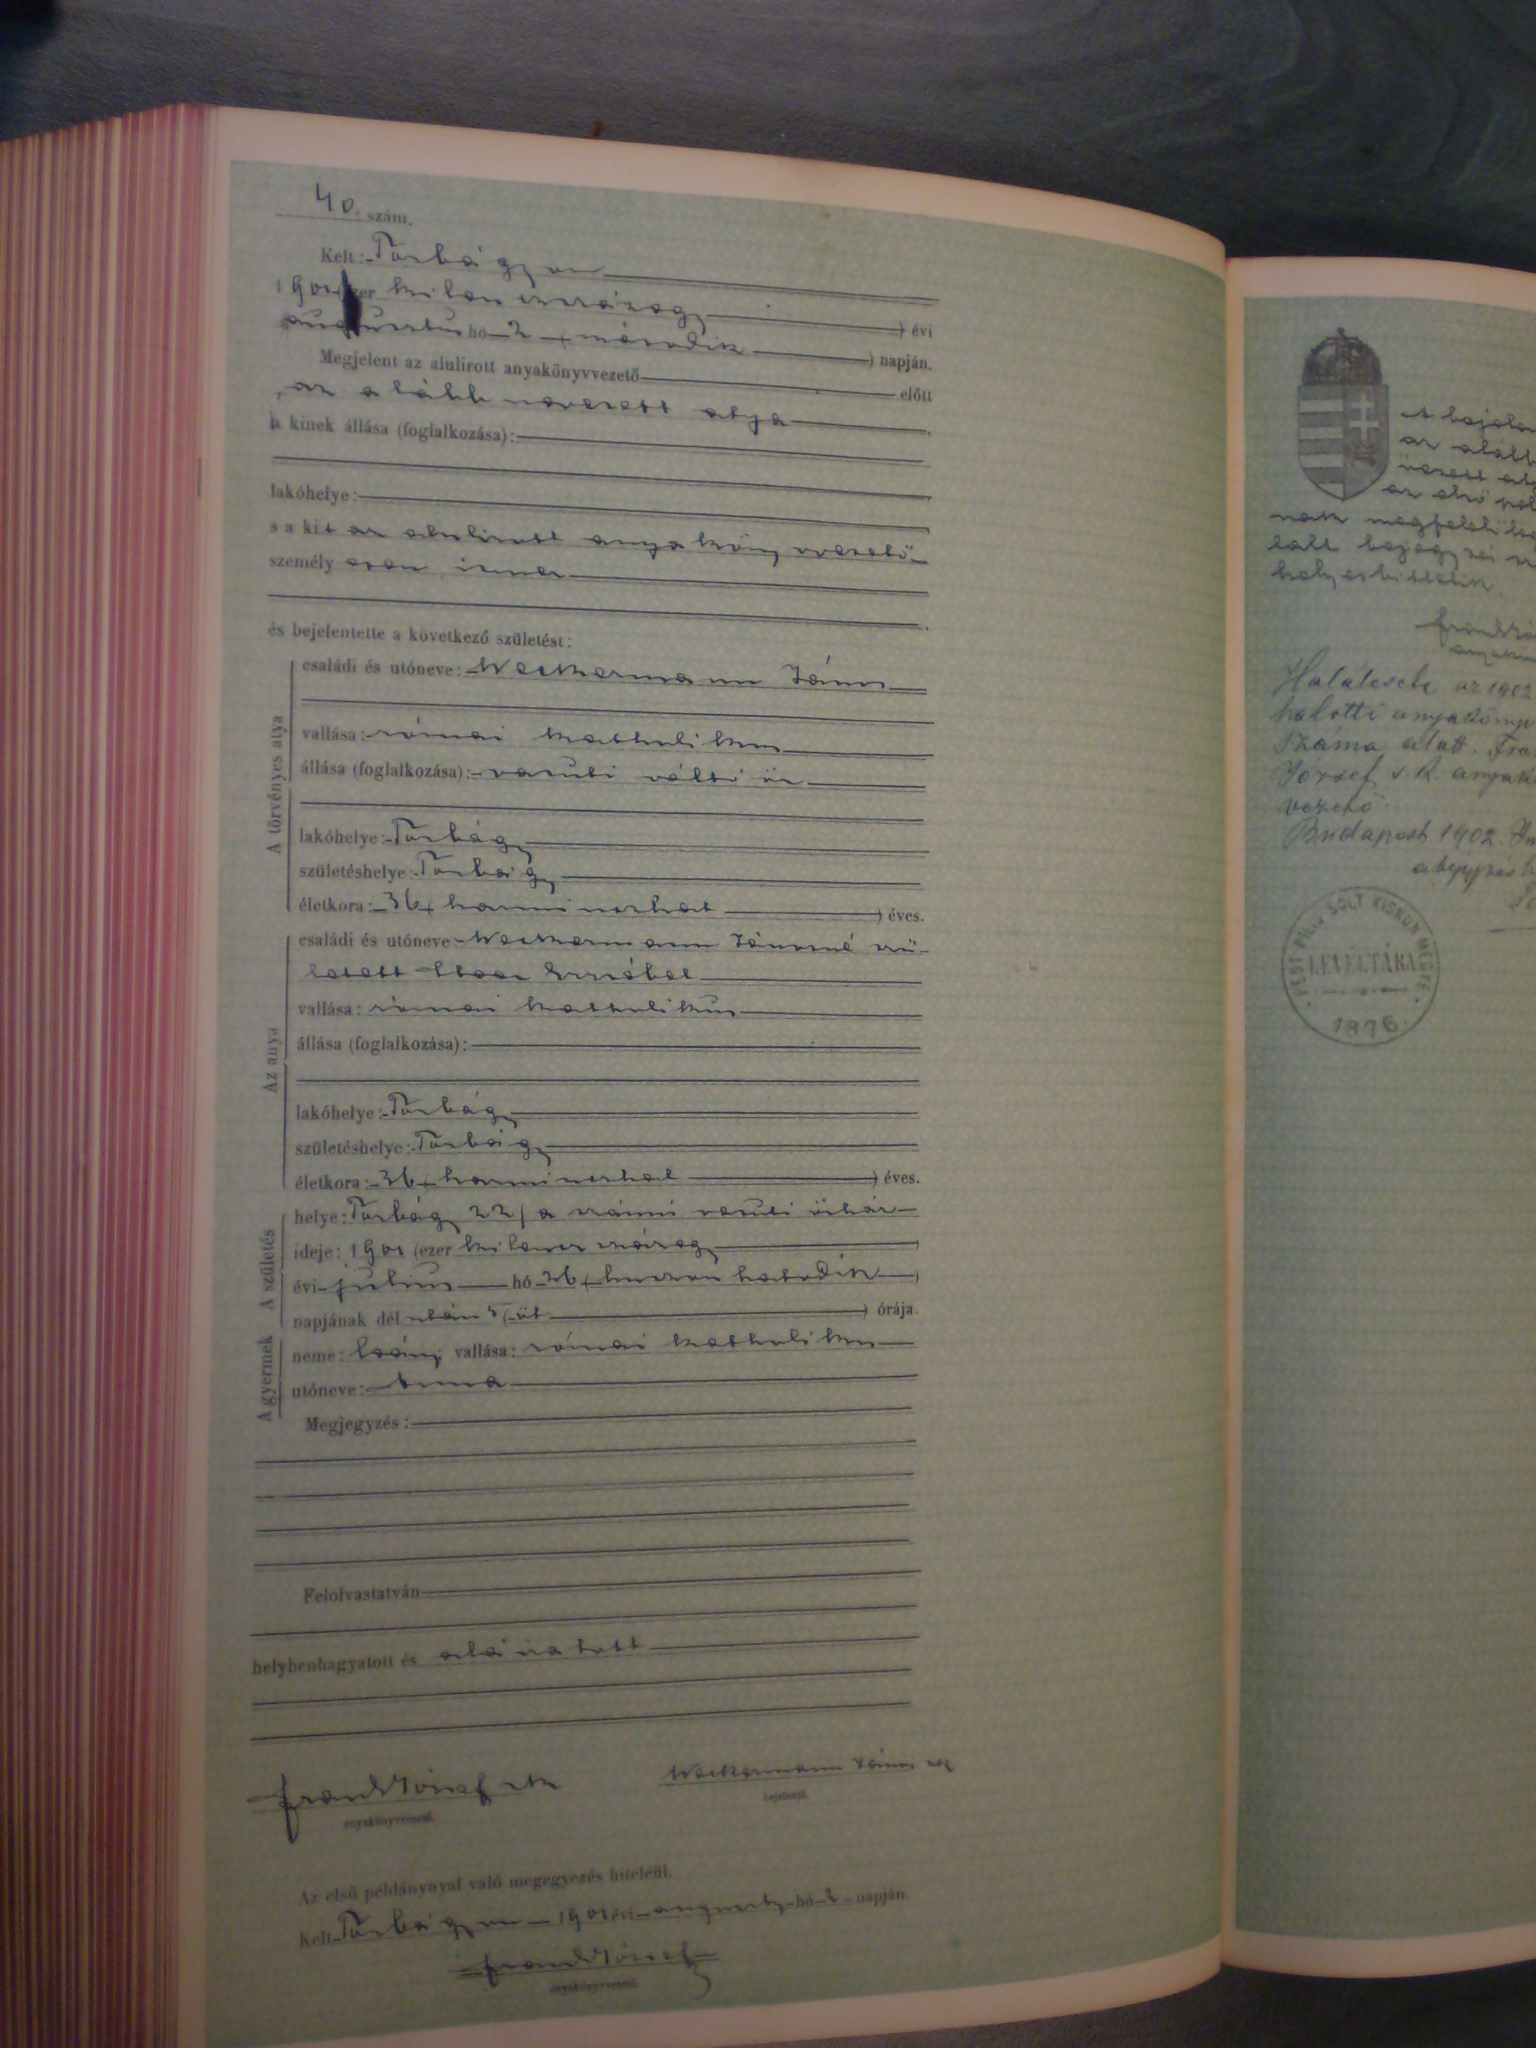 40 szám.
Kelt: Torbágyon
1901 (ezer kilencszázegy) évi
augusztus hó 2 (második) napján.
Megjelent az alulirott anyakönyvvezető előtt
az alább nevezett atya
a kinek állása (foglalkozása):
lakóhelye:
s a kit az alulirott anyakönyvvezető
személyesen ismer
és bejelentette a következő születést:
A törvényes atya
családi és utóneve: Wackermann János
vallása: római katholikus
állása (foglalkozása): vasuti váltó őr
lakóhelye: Torbágy
születéshelye: Torbágy
életkora: 36 (harminczhat) éves.
Az anya
családi és utóneve: Wackermann Jánosné szü-
letett Erzsébet
vallása: római katholikus
állása (foglalkozása):
lakóhelye: Torbágy
születéshelye: Torbágy
életkora: 36 (harminczhat) éves.
A születés
helye: Torbágy 22/a számú vasuti őrház
ideje: 1901 (ezer kilenczszázegy)
évi julius hó 26 (huszonhatodik)
napjának dél után 5 (öt) órája.
A gyermek
neme: leány; vallása: római katholikus
utóneve: Anna
Megjegyzés:
Felolvastatván
helybenhagyatott és aláiratott
Frank József sk Wackermann János sk
anyakönyvvezető. bejelentő.
Az első példánynyal való megegyezés hiteléül.
Kelt Torbágyon 1901 évi augusztus hó 2 napján
Frank József
anyakönyvvezető.
A
az alább
nak
helyesbittetik
Halálesete az 1902
halotti anyakönyv
száma alatt.
József s. k. anyak
vezető.
Budapest 1902.
PEST PILIS SOLT KISKUN MEGYE
LEVÉLTÁRA
1876